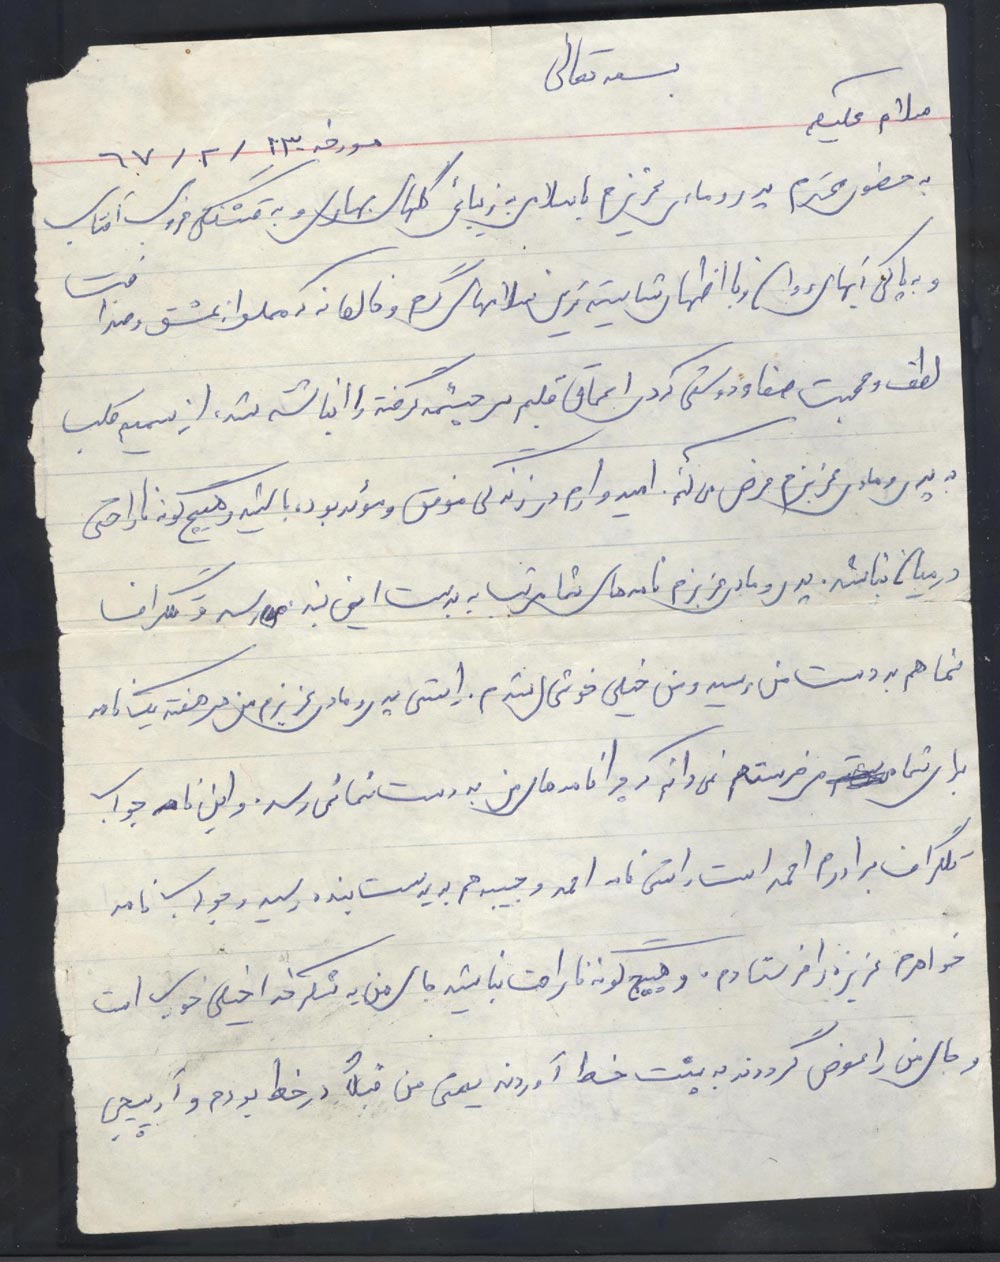 بسمه تعالی
سلام علیکم
مورخه ۶۷/۲/۱۳
به حضور محترم پدر و مادر عزیزم با سلامی به زیبائی گلهای بهاری و به قشنگی غروب آفتاب
و به پاکی آبهای روان و با اظهار شایسته ترین سلامهای گرم و که مملو از عشق و صداقت
لطف و محبت صفا و دوستی که در اعماق قلبم سرچشمه گرفته و انباشته شده، از صمیم قلب
به پدر و مادر عزیزم عرض می کنم. امیدوارم در زندگی موفق و موئد بوده باشید و هیچ گونه ناراحتی
در میان نباشد. پدر و مادر عزیزم نامه های شما مرتبا به دست این بنده می رسد و تلگراف
شما هم به دست من رسید و من خیلی خوشحال شدم. راستی پدر و مادر عزیزم من هر هفته یک نامه
برای شما می فرستم نمی دانم که چرا نامه های من به دست شما نمی رسد. و این نامه جواب
تلگراف برادرم احمد است راستی نامه احمد و حبیب هم به دست بنده رسید و جواب نامه
خواهرم عزیزه را فرستادم. و هیچ گونه ناراحت نباشید جای من به شکر خدا خیلی خوب است
و جای من را عوض کردند به پشت خط آوردند یعنی من قبلاً در خط بودم و آرپیجی